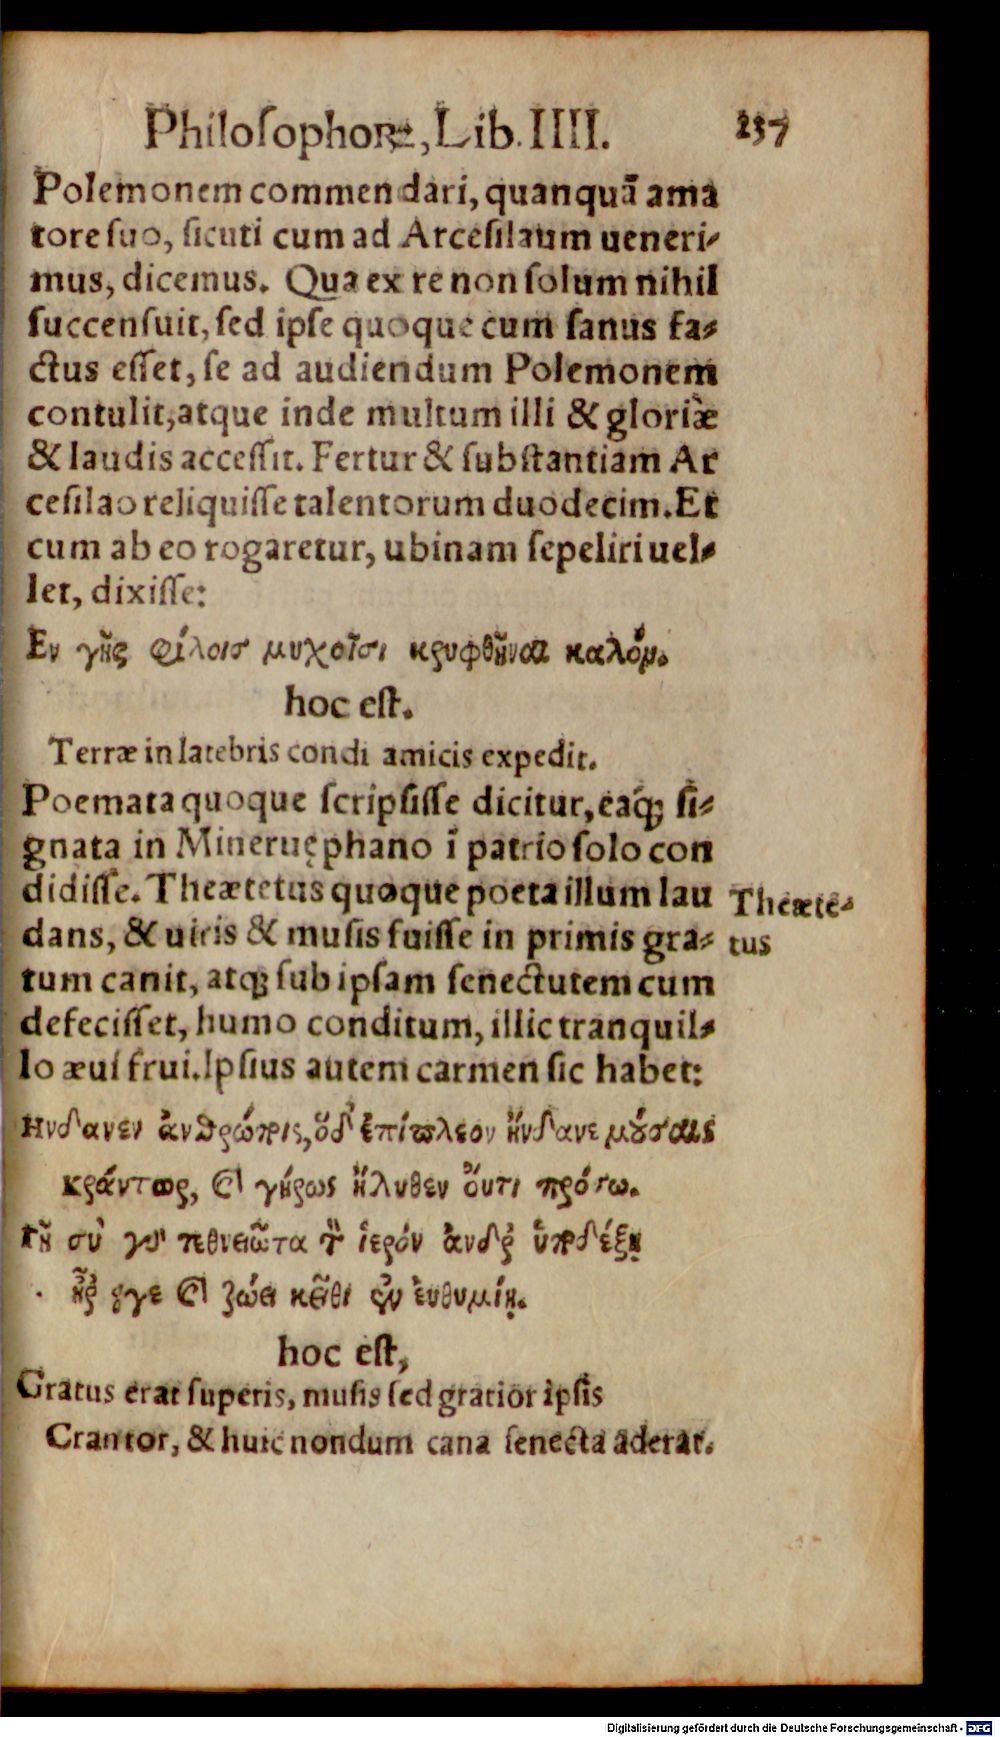 Philosophorꝝ, Lib. IIII. 237
Polemonem commendari, quanquā ama
tore suo, sicuti cum ad Arcesilaum ueneri-
mus, dicemus. Qua ex re non solum nihil
succensuit, sed ipse quoque cum sanus fa-
ctus esset, se ad audiendum Polemonem
contulit, atque inde multum illi & gloriæ
& laudis accessit. Fertur & substantiam Ar
cesilao reliquisse talentorum duodecim. Et
cum ab eo rogaretur, ubinam sepeliri uel-
let, dixisse:
Εν γῆς φίλοισ μυχοῖσι κρυφθῆναι καλόν.
hoc est.
Terræ in latebris condi amicis expedit.
Poemata quoque scripsisse dicitur, eaq́; si-
gnata in Mineruę phano ī patrio solo con
didisse. Theætetus quoque poeta illum lau
dans, & uiris & musis fuisse in primis gra-
tum canit, atq; sub ipsam senectutem cum
defecisset, humo conditum, illic tranquil-
lo æui frui. Ipsius autem carmen sic habet:
Theæte-
tus
Ηνδανεν ἀνθρώποις, ὅδ' ἐπίπλεον ἥνδανε μούσαις
κράντωρ, καὶ γήρως ἤλυθεν οὔτι πρόσω.
γῆ σὺ τεθνειῶτα τὸν ἱερόν ἄνδρ' ὑποδέξῃ
καὶ ζώει κεῖθι ἐν εὐθυμίῃ.
hoc est,
Gratus erat superis, musis sed gratior ipsis
Crantor, & huic nondum cana senecta aderat.
Digitalisierung gefördert durch die Deutsche Forschungsgemeinschaft - DFG